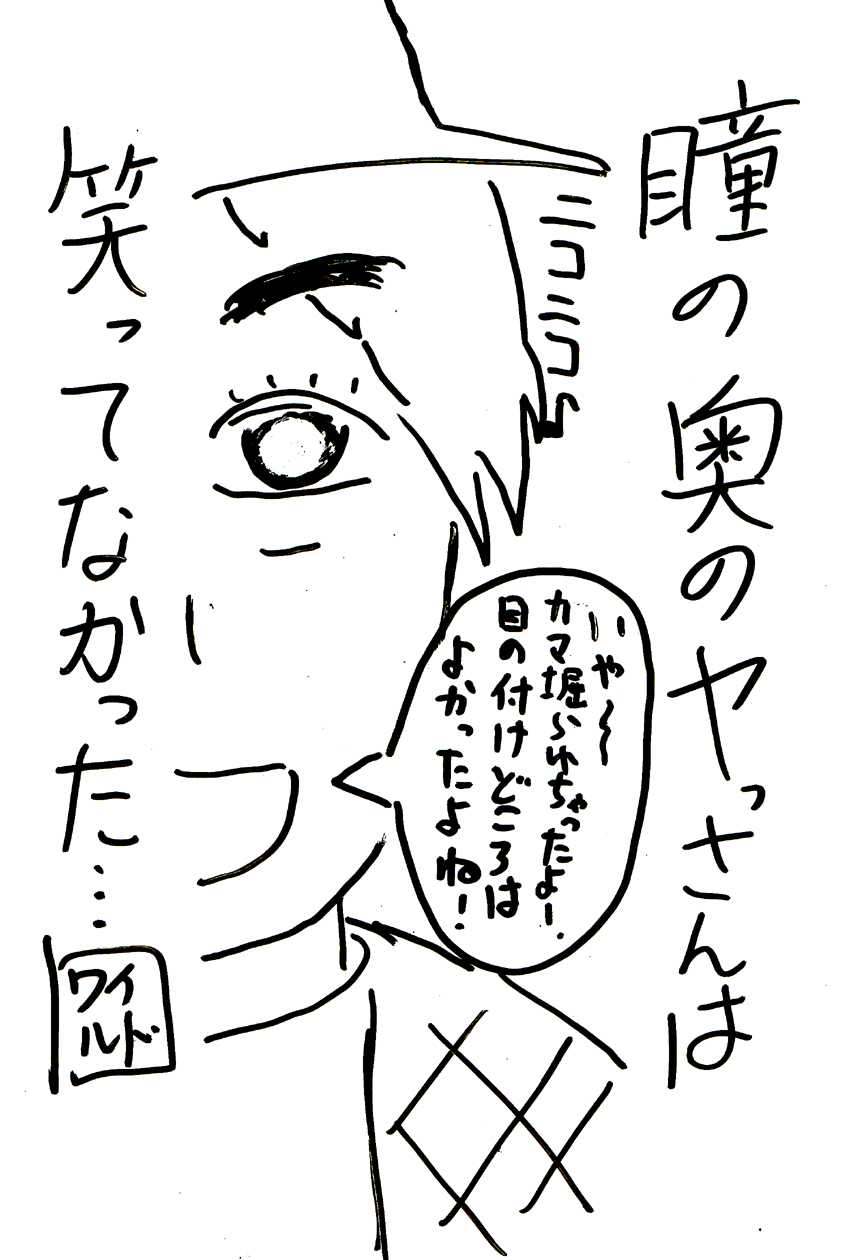 瞳の奥のヤっさんは
ニコニコ
いや～
カマ掘られちゃったよー.
目の付けどころは
よかったよね!
笑ってなかった…
ワイ
ルド